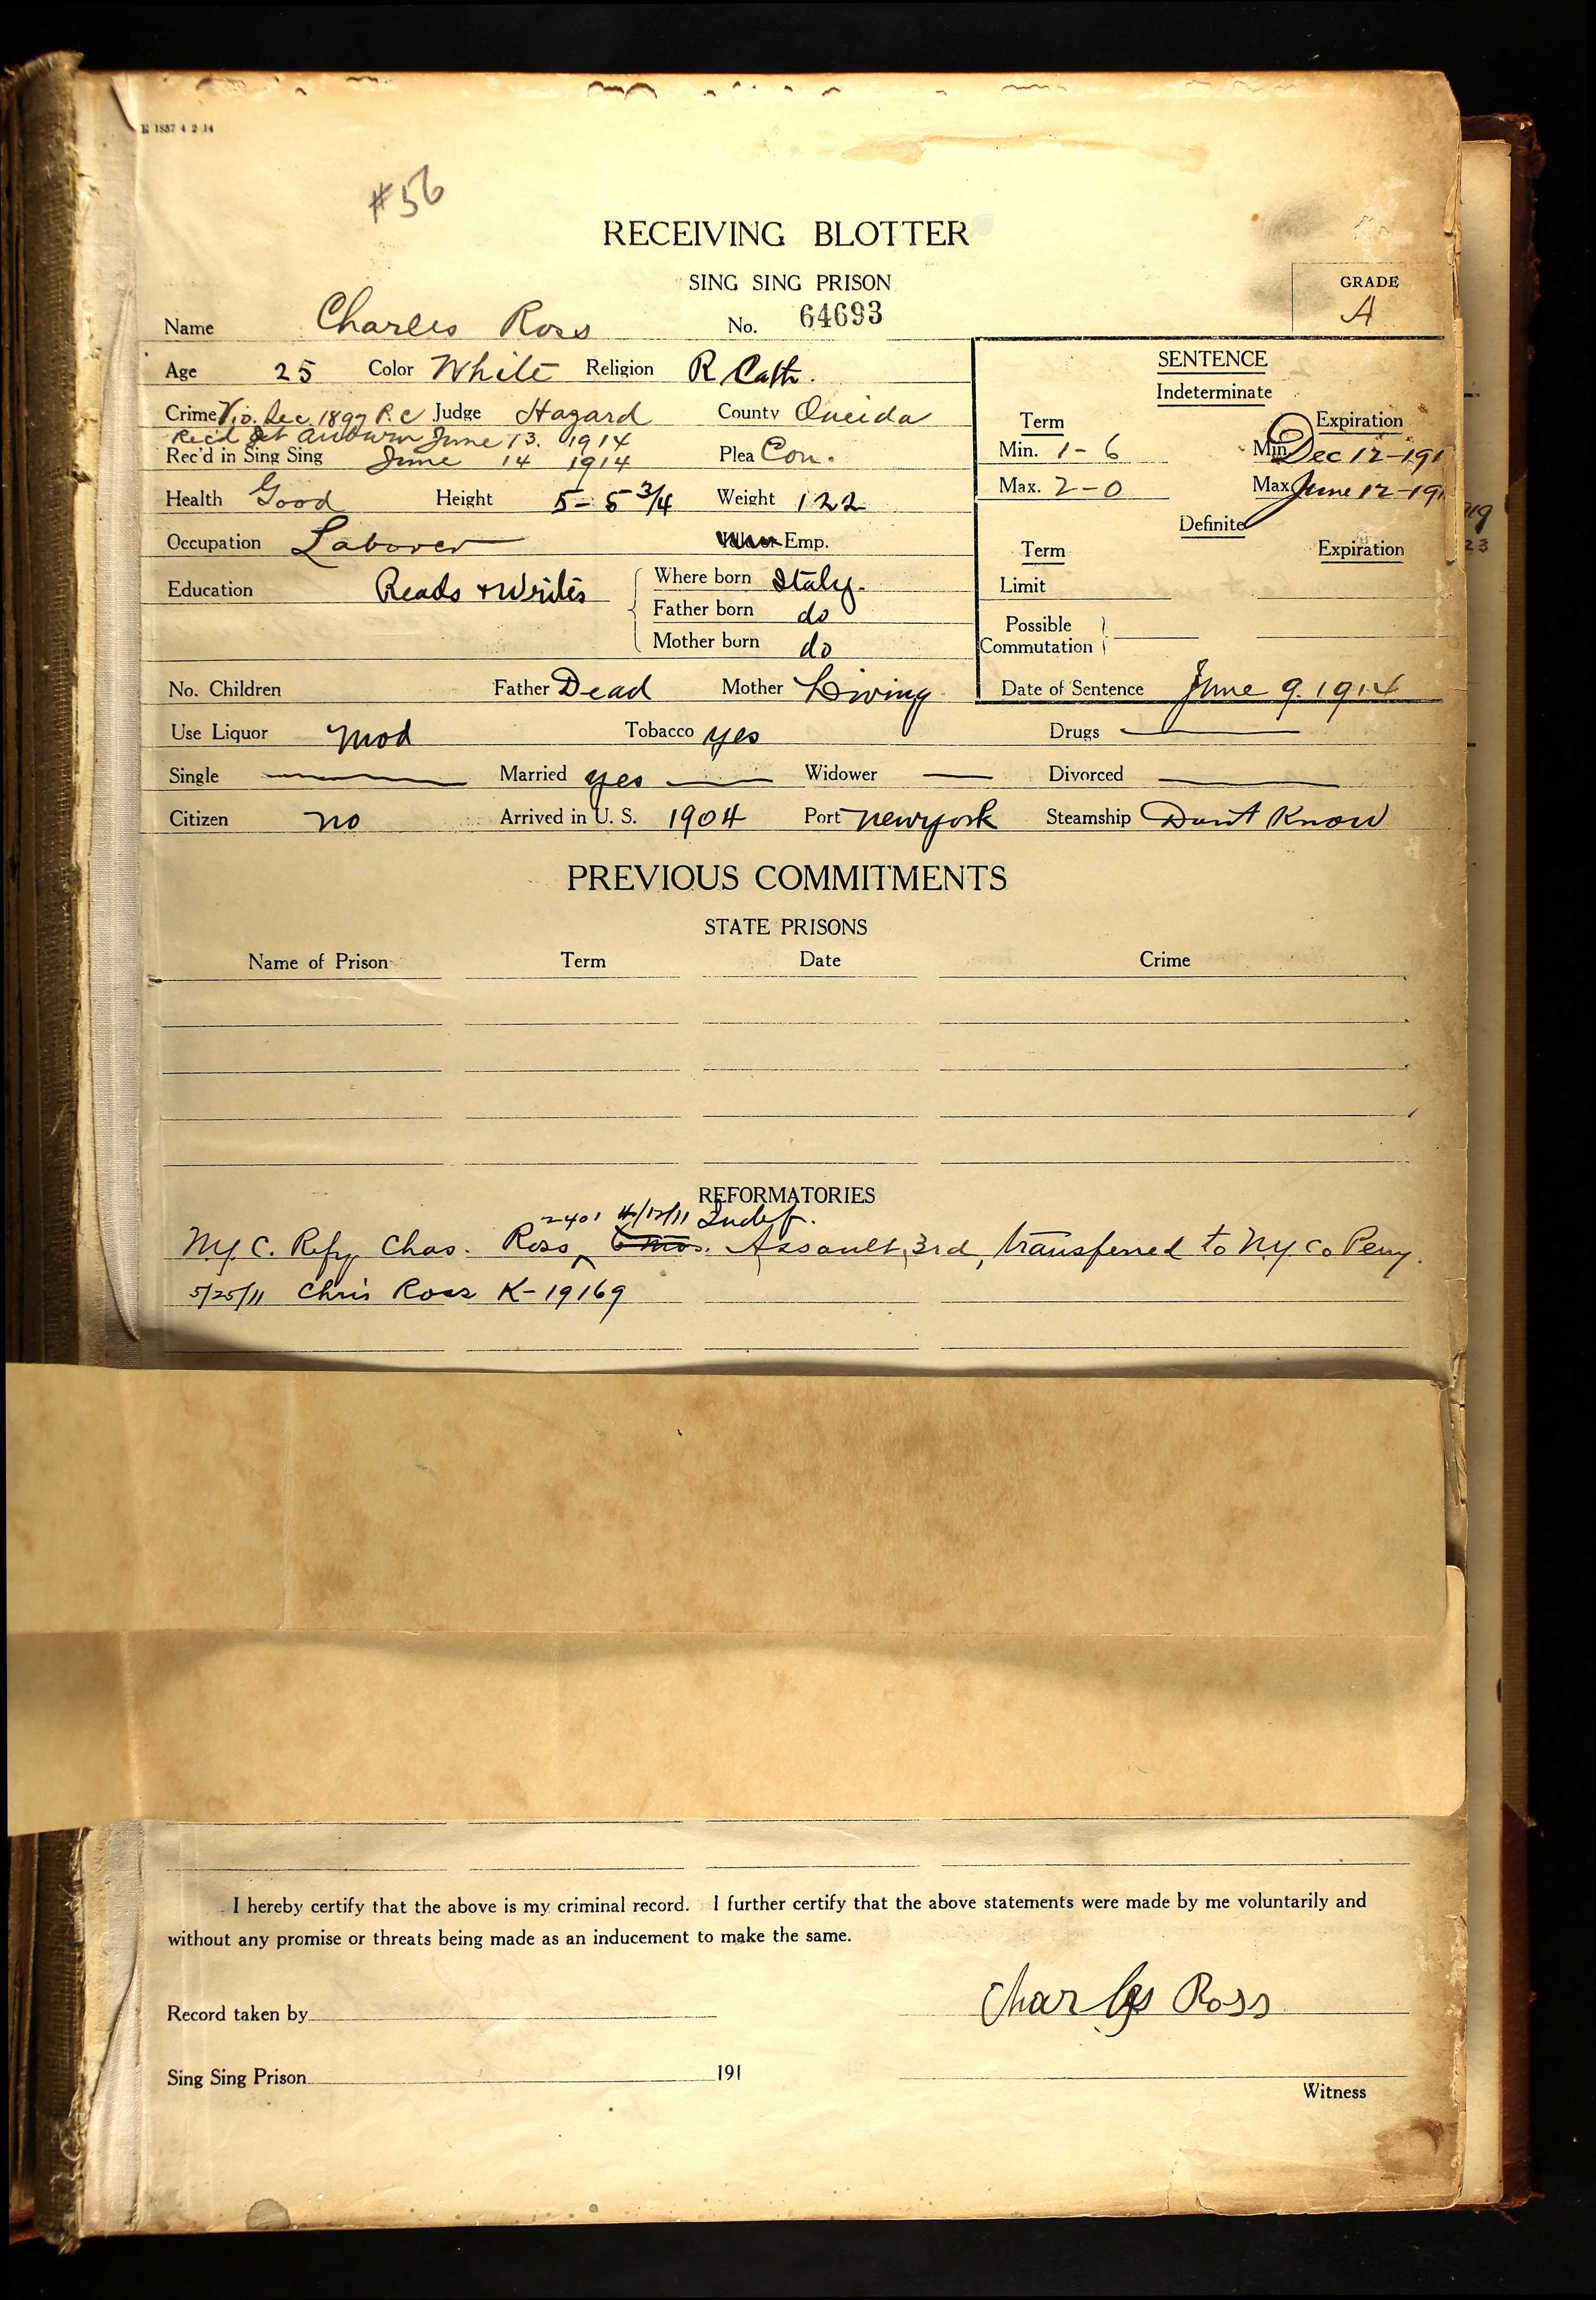 E 1857 4 2 14
#56
RECEIVING BLOTTER
SING SING PRISON
GRADE
A
Name Charles Ross No. 64693
Age 25 Color White Religion R Cath.
Crime Vio. Sec. 1897 P. C Judge Hazard County Oneida
Rec'd at Auburn June 13. 1914
Rec'd in Sing Sing June 14 1914 Plea Con.
Health Good Height 5-5 3/4 Weight 122
Occupation Laborer Emp.
Education Reads + Writes
Where born Italy.
Father born do
Mother born do
SENTENCE
Indeterminate
Term Expiration
Min. 1-6 Min Dec 12-191
Max. 2-0 Max June 12-191
Definite
Term Expiration
Limit
Possible
Commutation
Date of Sentence June 9. 1914
No. Children Father Dead Mother Living
Use Liquor Mod Tobacco yes Drugs
Single Married yes Widower Divorced
Citizen no Arrived in U. S. 1904 Port newyork Steamship Dont Know
PREVIOUS COMMITMENTS
STATE PRISONS
Name of Prison Term Date Crime
REFORMATORIES
2401 4/12/11 Indef.
N.Y. C. Refy Chas. Ross, 6 mos. Assault, 3rd, transferred to N.Y. Co Peny.
5/25/11 Chris Ross K-19169
I hereby certify that the above is my criminal record. I further certify that the above statements were made by me voluntarily and
without any promise or threats being made as an inducement to make the same.
Record taken by Charles Ross
Sing Sing Prison 191
Witness